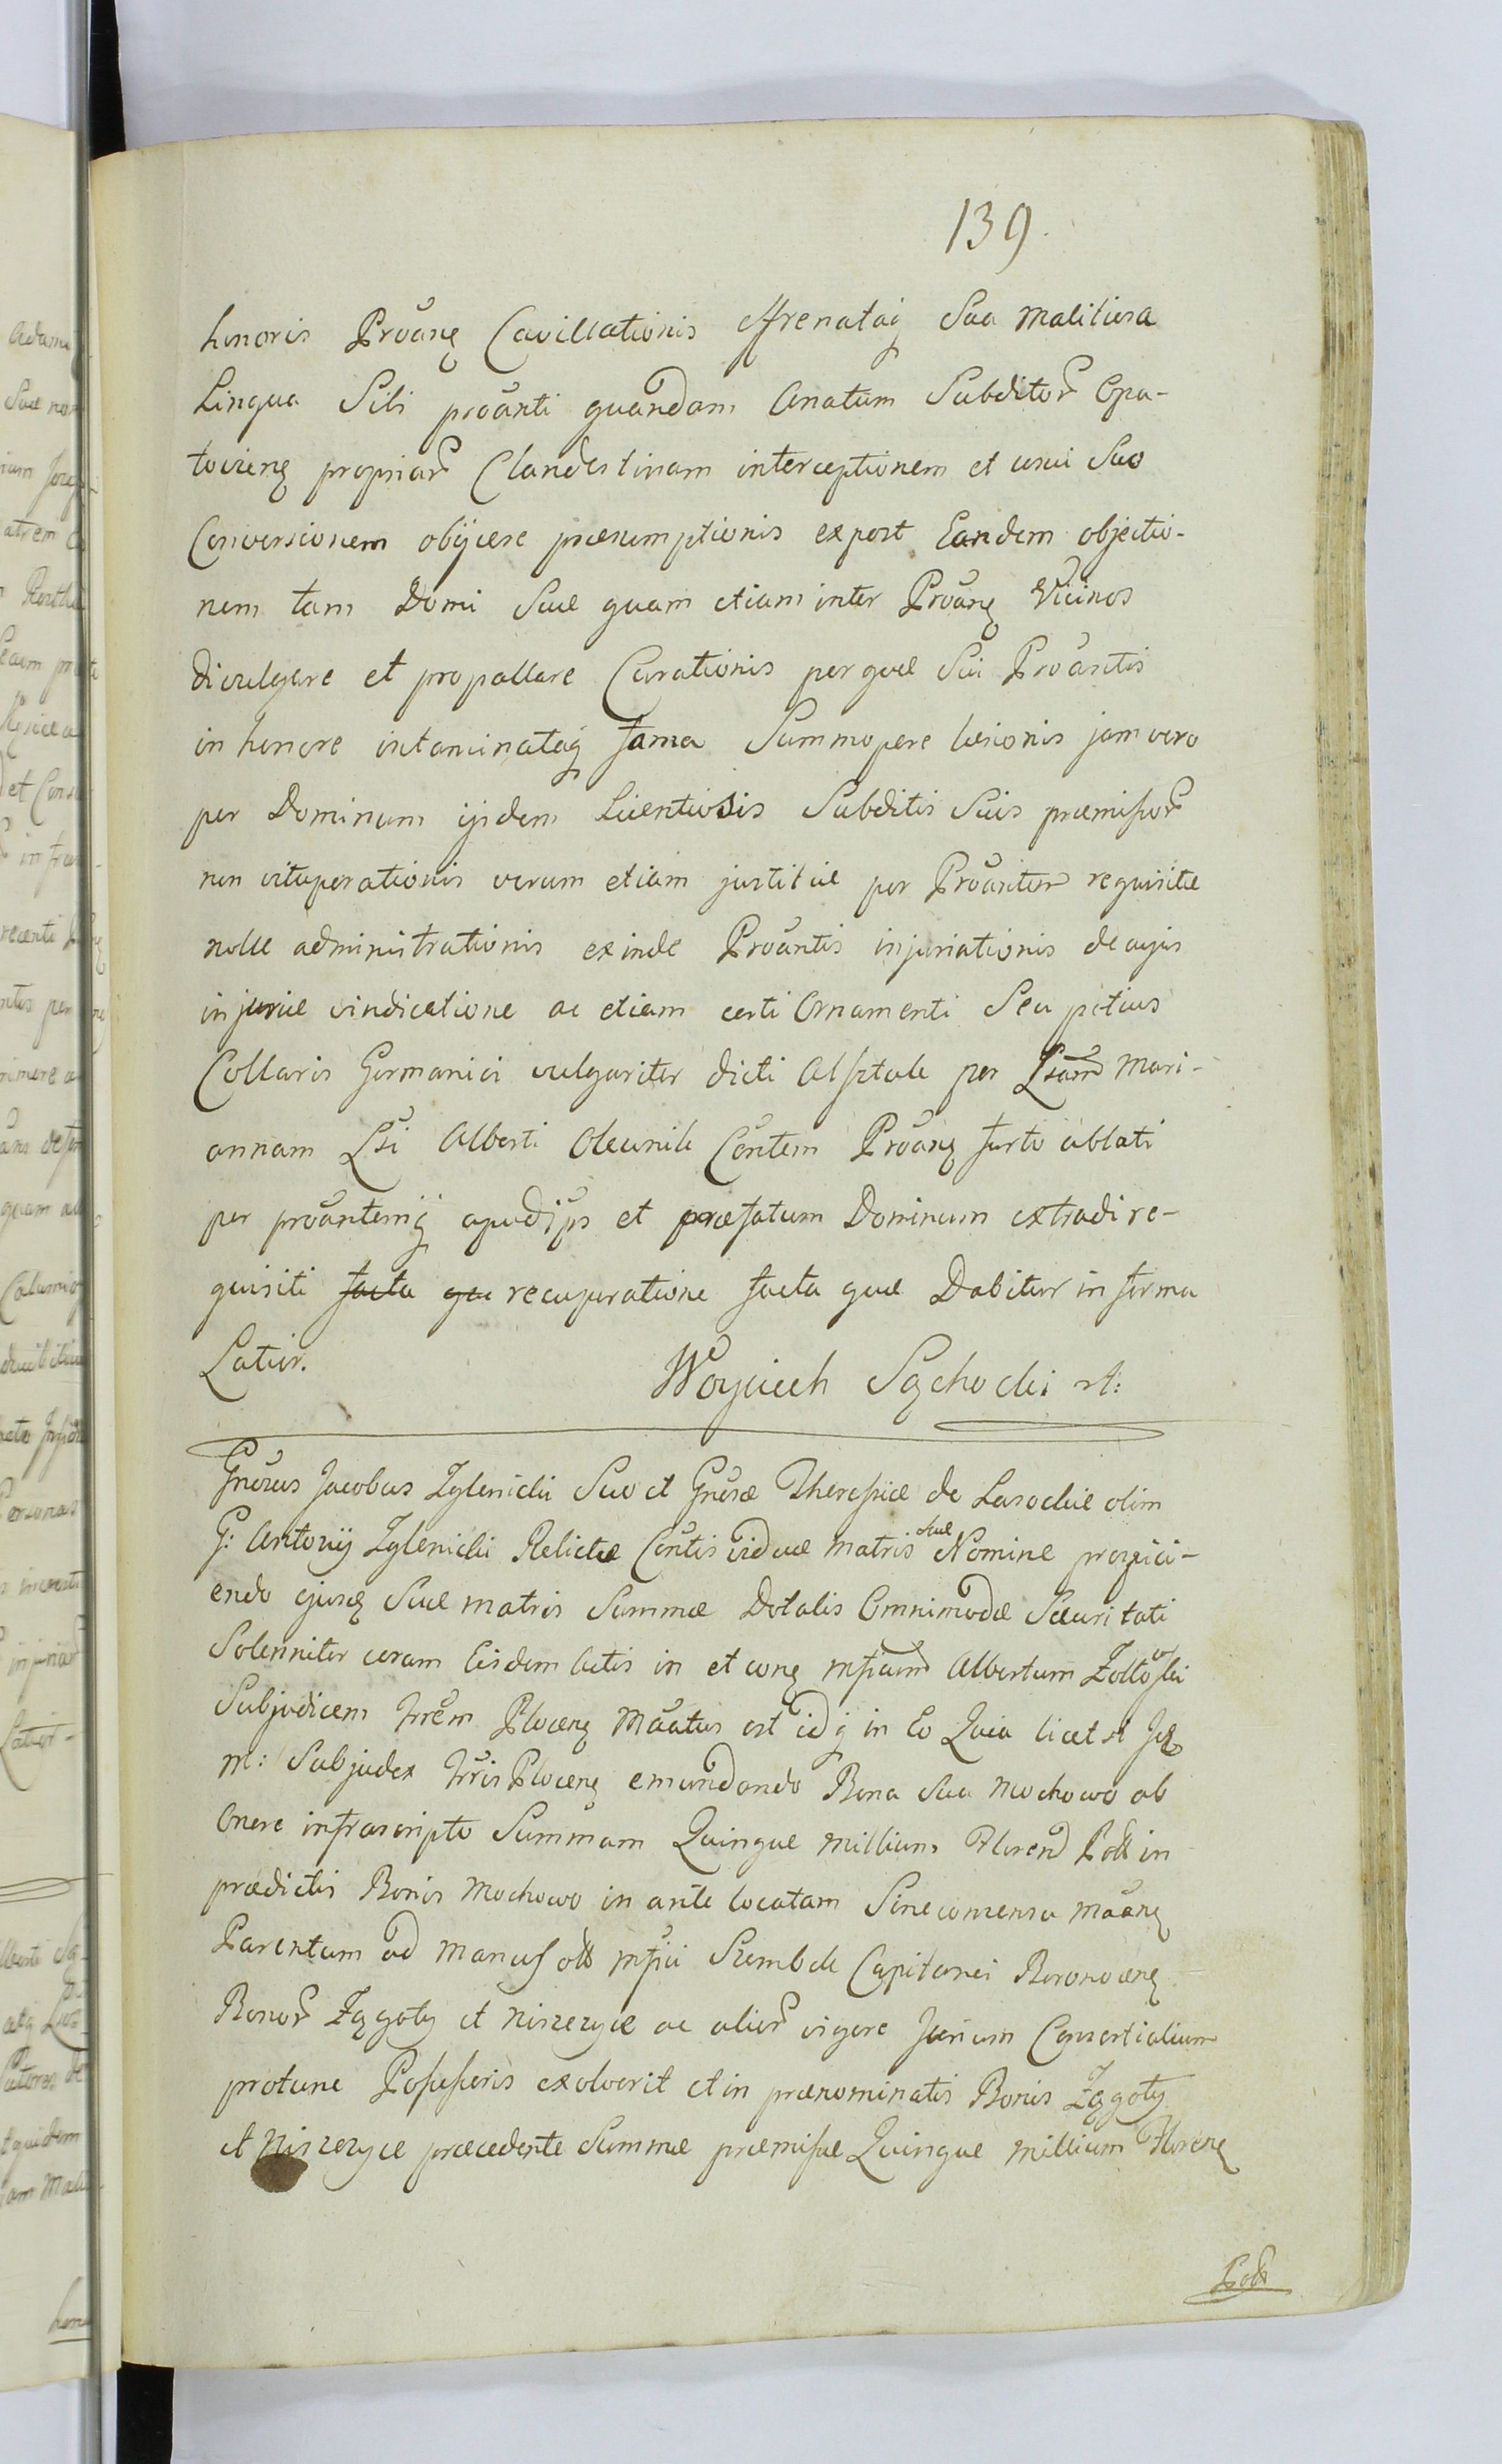 139.
honoris Proãnẹ Cavillationis effrenataqꝫ Sua Malitiosa
Lingua Sibi proãnti quandam Anatum Subditor̃ Opa-
toviens propriar̃ Clandestinam interceptionem et usui Suo
Conversionem obijcere præsumptionis expost Eandem objectio-
nem tam Domi Suæ quam etiam inter Proãns Vicinos
divulgare et propallare Curationis per quæ Sui Proãntis
in honore intaminataqꝫ fama Summopere læsionis jam vero
per Dominum ijsdem Licentiosis Subditis Suis præmissor̃
non vituperationis verum etiam justitiæ per Proãntem requisitæ
nolle administrationis exinde Proãntis injuriationis de cujus
injuriæ vindicatione ac etiam certi Ornamenti Seu potius
Collaris Germanici vulgariter dicti Alsztuk per Lsam Mari-
annam Lsi Alberti Oleunik Cõntem Proãns furto ablati
per proãntemqꝫ apud ips et præfatum Dominum extradi re-
quisiti facta que recuperatione facta quæ Dabitur in forma
Latior.
Woyciech Sąchocki m:
Gnõsus Jacobus Zglenicki Suo et Gnõsæ Theressiæ de Lasockie olim
G: Antonij Zglenicki Relictæ Cõntis viduæ matris Suæ Nomine prospici-
endo ejusꝫ Suæ matris Summæ Dotalis Omnimodæ Securitati
Solenniter coram Eisdem Actis in et conꝫ Mficum Albertum Żołtowski
Subjudicem Trrẽm Plocenꝫ Mãatus est idqꝫ in Eo Quia licet
M: Subjudex Trris Plocenꝫ emundando Bona Sua Mochowo ab
Onere infrascripto Summam Quinque Millium Floren Poll in
prædictis Bonis Mochowo in ante locatam Sine consensu Mãanꝫ
Parentum ad Manus oll Mfici Szembek Capitanei
Bonor̃ Żągoty et Niszczyce ac alior̃ vigore Jurium Consortialium
protunc Possessoris exolverit et in prænominatis Bonis Żągoty
et Niszczyce præcedente Summæ præmissæ Quinque Millium Florenꝫ
Poll